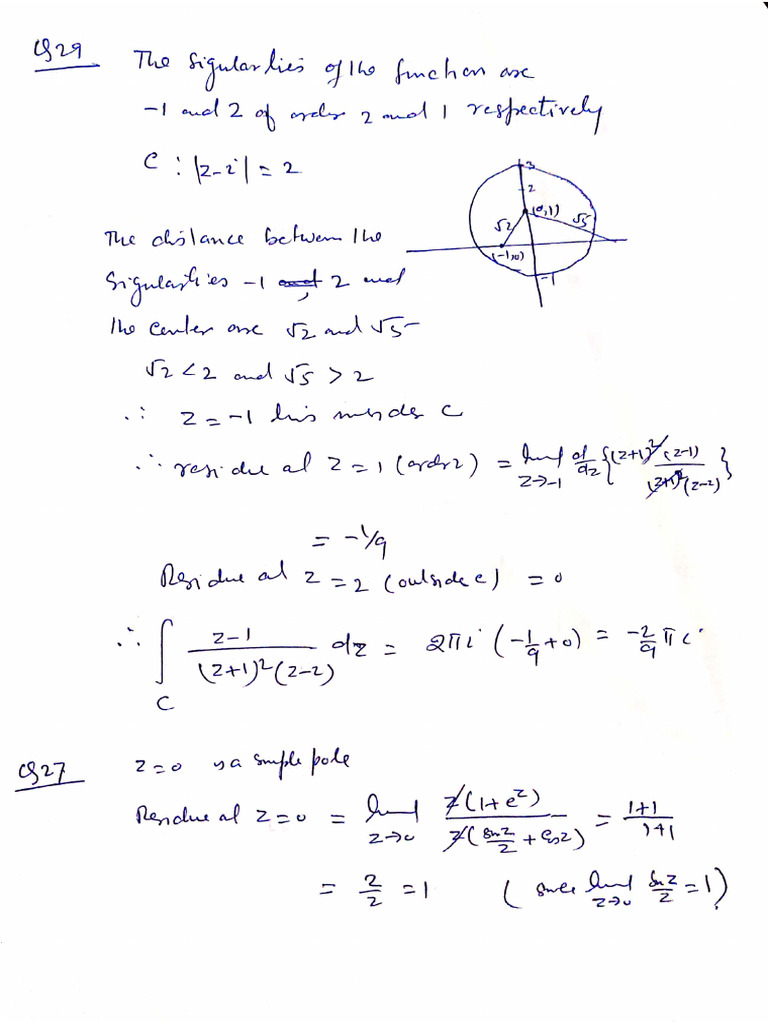 Q29 The sigularities of the function are
-1 and 2 of order 2 and 1 respectively
C : |z-i| = 2
3
2
(0,1)
√2
√5
(-1,0)
-1
The distance between the
sigularities -1, 2 and
the center are √2 and √5
√2 < 2 and √5 > 2
∴ z = -1 lies inside C
∴ residue at z = 1 (order 2) = lim z→-1 d/dz {(z+1)² (z-1) / (z+1)² (z-2)}
= -1/9
Residue at z = 2 (outside C) = 0
∴ ∫C (z-1) / ((z+1)² (z-2)) dz = 2πi (-1/9 + 0) = -2/9 πi
Q27 z=0 is a simple pole
Residue at z=0 = lim z→0 z(1+e^z) / z(sin z/z + cos z) = (1+1)/(1+1)
= 2/2 = 1 (since lim z→0 sin z/z = 1)